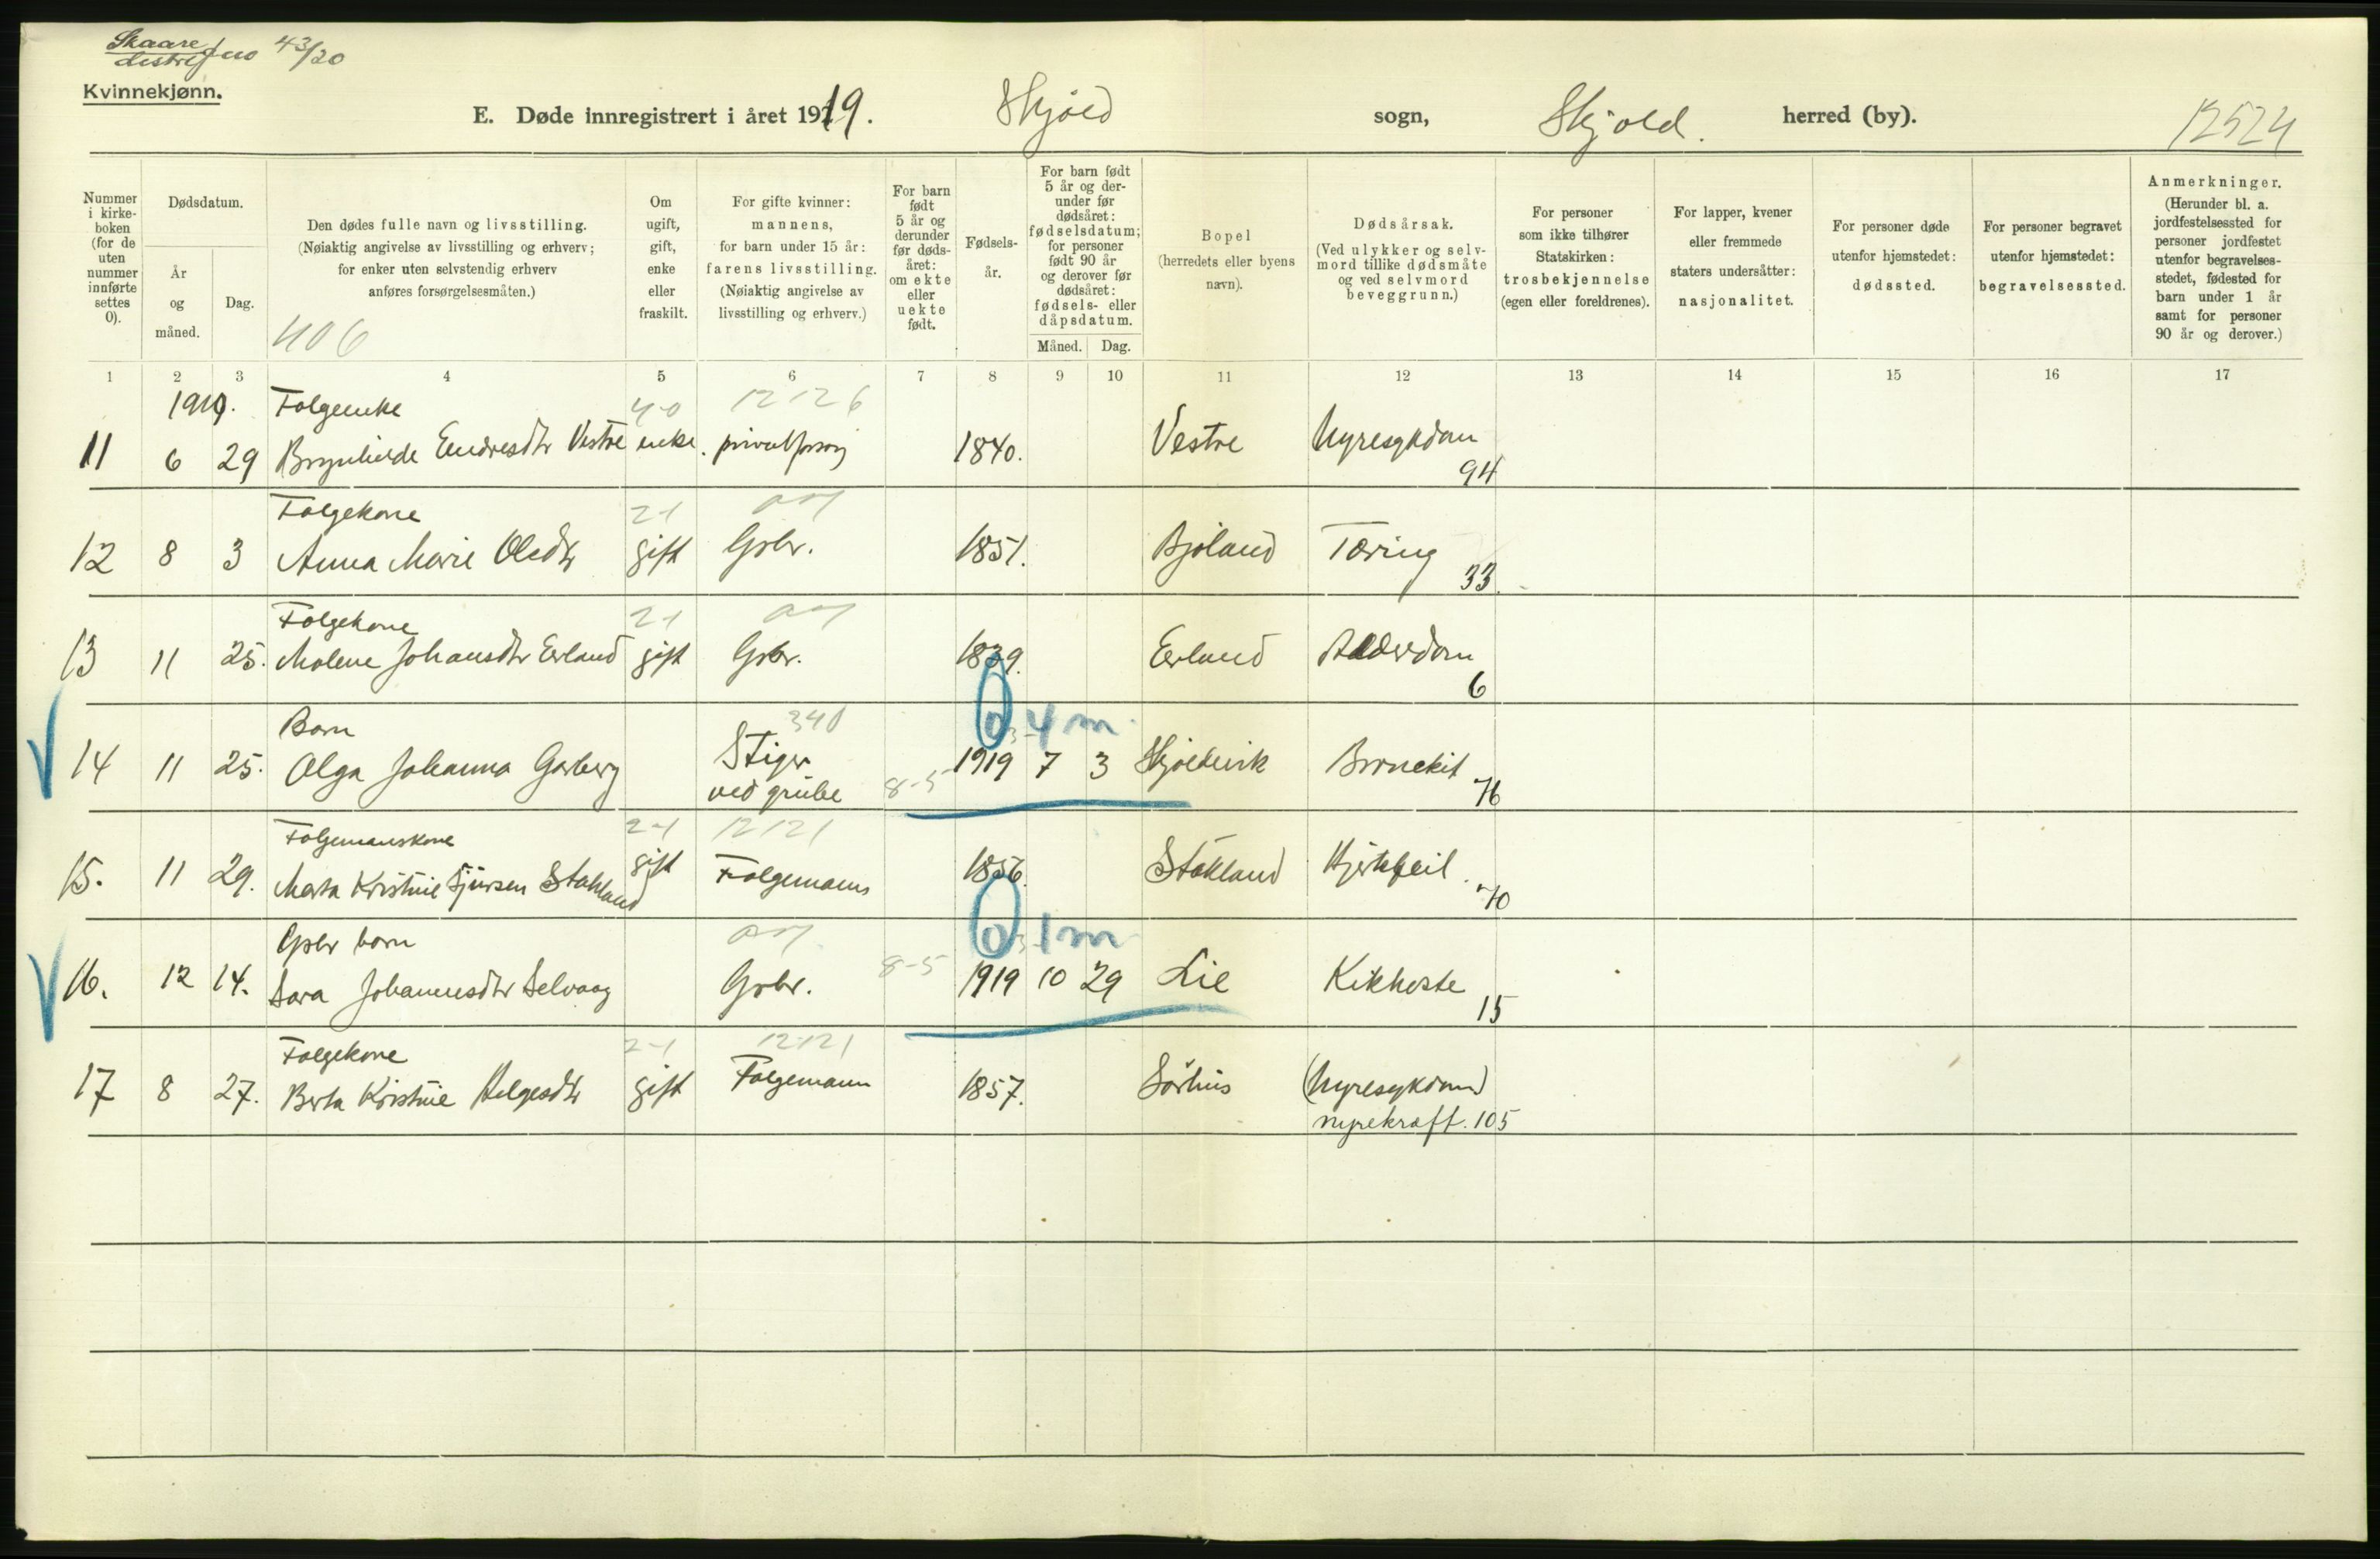 Skaare
distr. jno 43/20
Kvinnekjønn.
E. Døde innregistrert i året 1919. Skjold sogn, Skjold. herred (by). 12524
Nummer i kirkeboken (for de uten nummer innførte settes 0).
Dødsdatum.
År og måned.
Dag.
Den dødes fulle navn og livsstilling.
(Nøiaktig angivelse av livsstilling og erhverv;
for enker uten selvstendig erhverv
anføres forsørgelsesmåten.)
406
Om ugift, gift, enke eller fraskilt.
For gifte kvinner:
mannens,
for barn under 15 år:
farens livsstilling.
(Nøiaktig angivelse av
livsstilling og erhverv.)
For barn født 5 år og derunder før dødsåret: om ekte eller uekte født.
Fødselsår.
For barn født 5 år og derunder før dødsåret: fødselsdatum; for personer født 90 år og derover før dødsåret: fødsels- eller dåpsdatum.
Måned. Dag.
Bopel
(herredets eller byens
navn).
Dødsårsak.
(Ved ulykker og selvmord tillike dødsmåte og ved selvmord beveggrunn.)
For personer
som ikke tilhører
Statskirken:
trosbekjennelse
(egen eller foreldrenes).
For lapper, kvener
eller fremmede
staters undersåtter:
nasjonalitet.
For personer døde
utenfor hjemstedet:
dødssted.
For personer begravet
utenfor hjemstedet:
begravelsessted.
Anmerkninger.
(Herunder bl. a.
jordfestelsessted for
personer jordfestet
utenfor begravelses-
stedet, fødested for
barn under 1 år
samt for personer
90 år og derover.)
1 2 3 4 5 6 7 8 9 10 11 12 13 14 15 16 17
1919. Folgeenke 40 12126
11 6 29 Brynhilde Endresdtr Vestre enke. privat forsørg 1840. Vestre Nyresykdom 94
Folgekone 21
12 8 3 Anna Marie Olsdtr gift Gbr. 1851. Bjoland Tæring 33.
Folgekone 21
13 11 25. Malene Johansdtr Erland gift Gbr. 1839. Erland Alderdom 6
Barn 340 0 3 4 m
14 11 25. Olga Johanna Garberg Stiger ved grube 8-5 1919 7 3 Skjoldevik Bronekit 76
Folgemanskone 2-1 12121
15. 11 29. Marta Kristine Sjursen Stakland gift Folgemann 1856. Stakland Hjertefeil. 70
Gbr barn 0 3 1 m
16. 12 14. Sara Johannesdtr Selvaag Gbr. 8-5 1919 10 29 Lie Kikhoste 15
Folgekone 2-1 12121
17 8 27. Berta Kristine Helgesdtr gift Folgemann 1857. Sørhus (Nyresykdom)
nyrekræft. 105